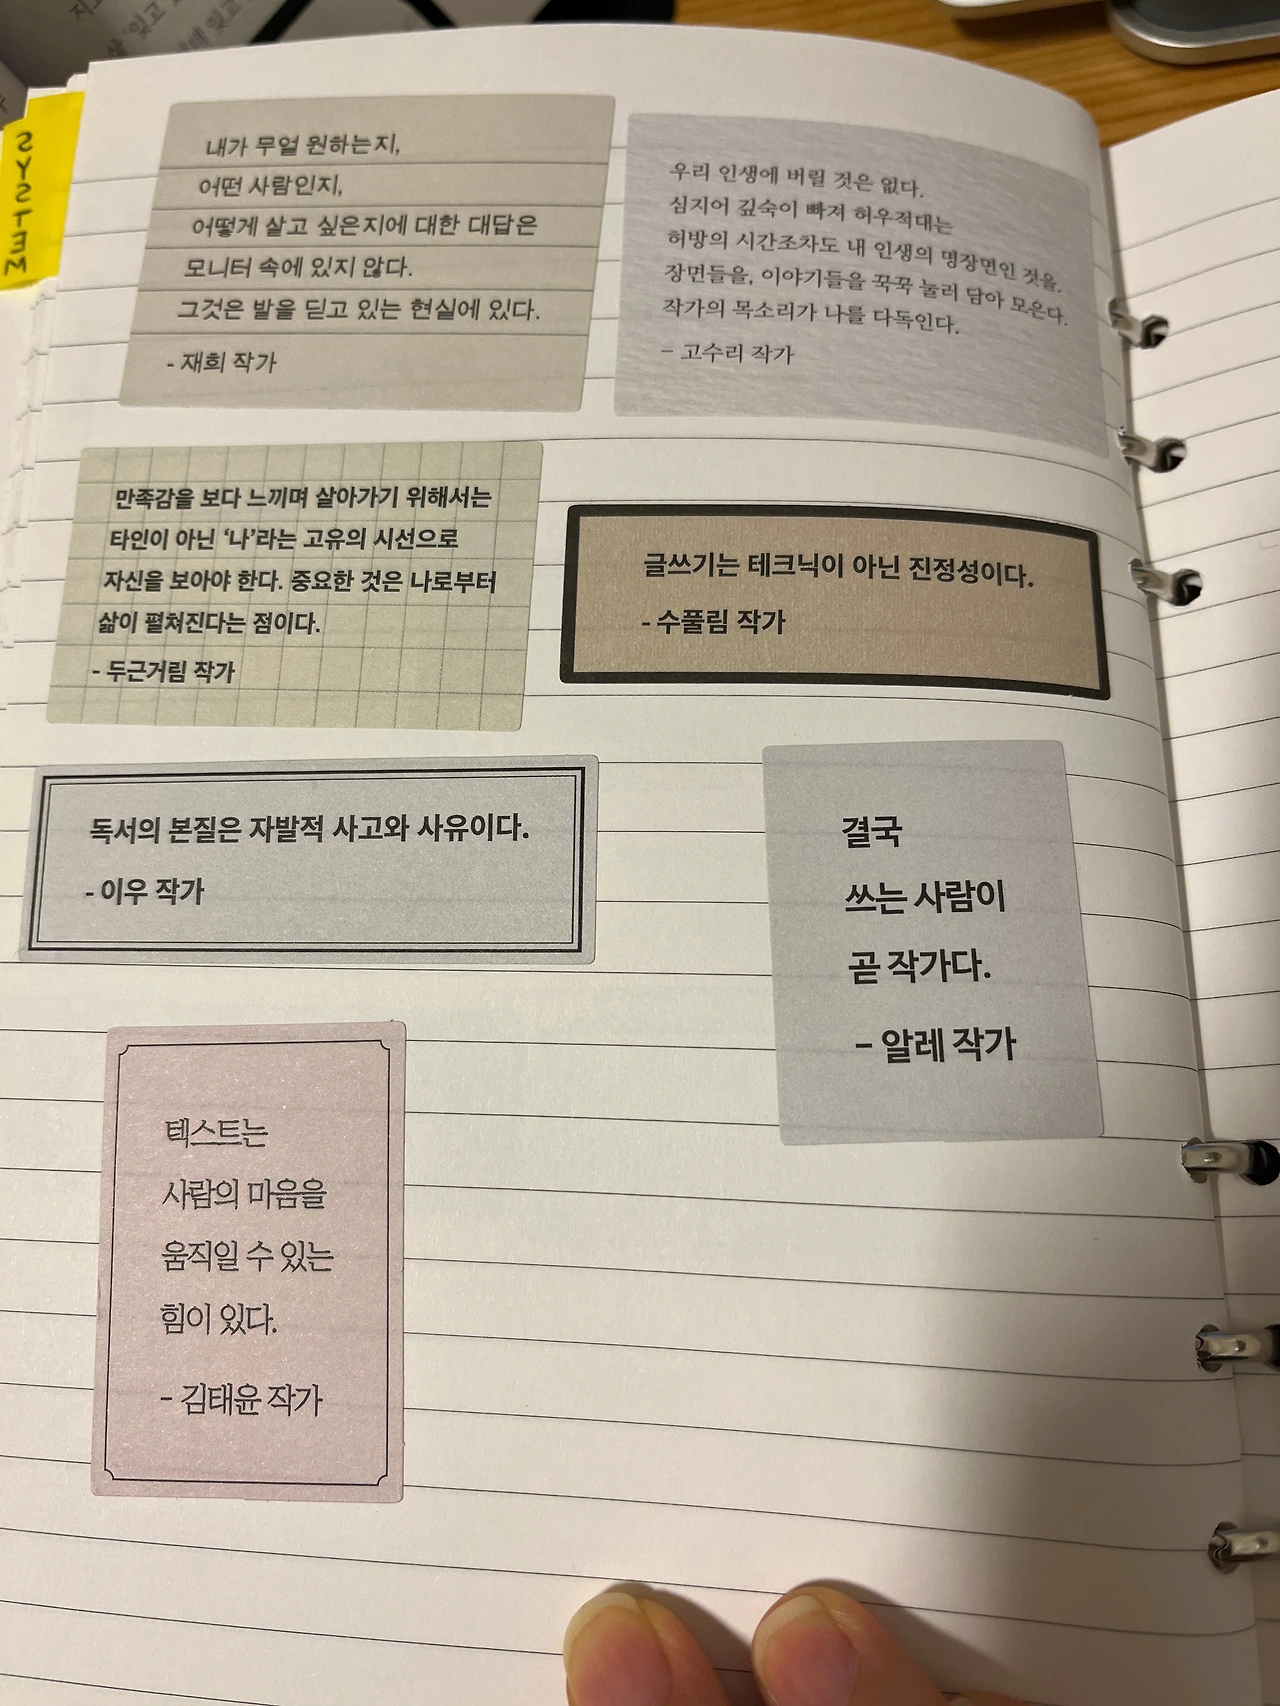 SYSTEM
내가 무얼 원하는지,
어떤 사람인지,
어떻게 살고 싶은지에 대한 대답은
모니터 속에 있지 않다.
그것은 발을 딛고 있는 현실에 있다.
- 재희 작가
우리 인생에 버릴 것은 없다.
심지어 깊숙이 빠져 허우적대는
허방의 시간조차도 내 인생의 명장면인 것을.
장면들을, 이야기들을 꾹꾹 눌러 담아 모은다.
작가의 목소리가 나를 다독인다.
- 고수리 작가
만족감을 보다 느끼며 살아가기 위해서는
타인이 아닌 ‘나’라는 고유의 시선으로
자신을 보아야 한다. 중요한 것은 나로부터
삶이 펼쳐진다는 점이다.
- 두근거림 작가
글쓰기는 테크닉이 아닌 진정성이다.
- 수풀림 작가
독서의 본질은 자발적 사고와 사유이다.
- 이우 작가
결국
쓰는 사람이
곧 작가다.
- 알레 작가
텍스트는
사람의 마음을
움직일 수 있는
힘이 있다.
- 김태윤 작가